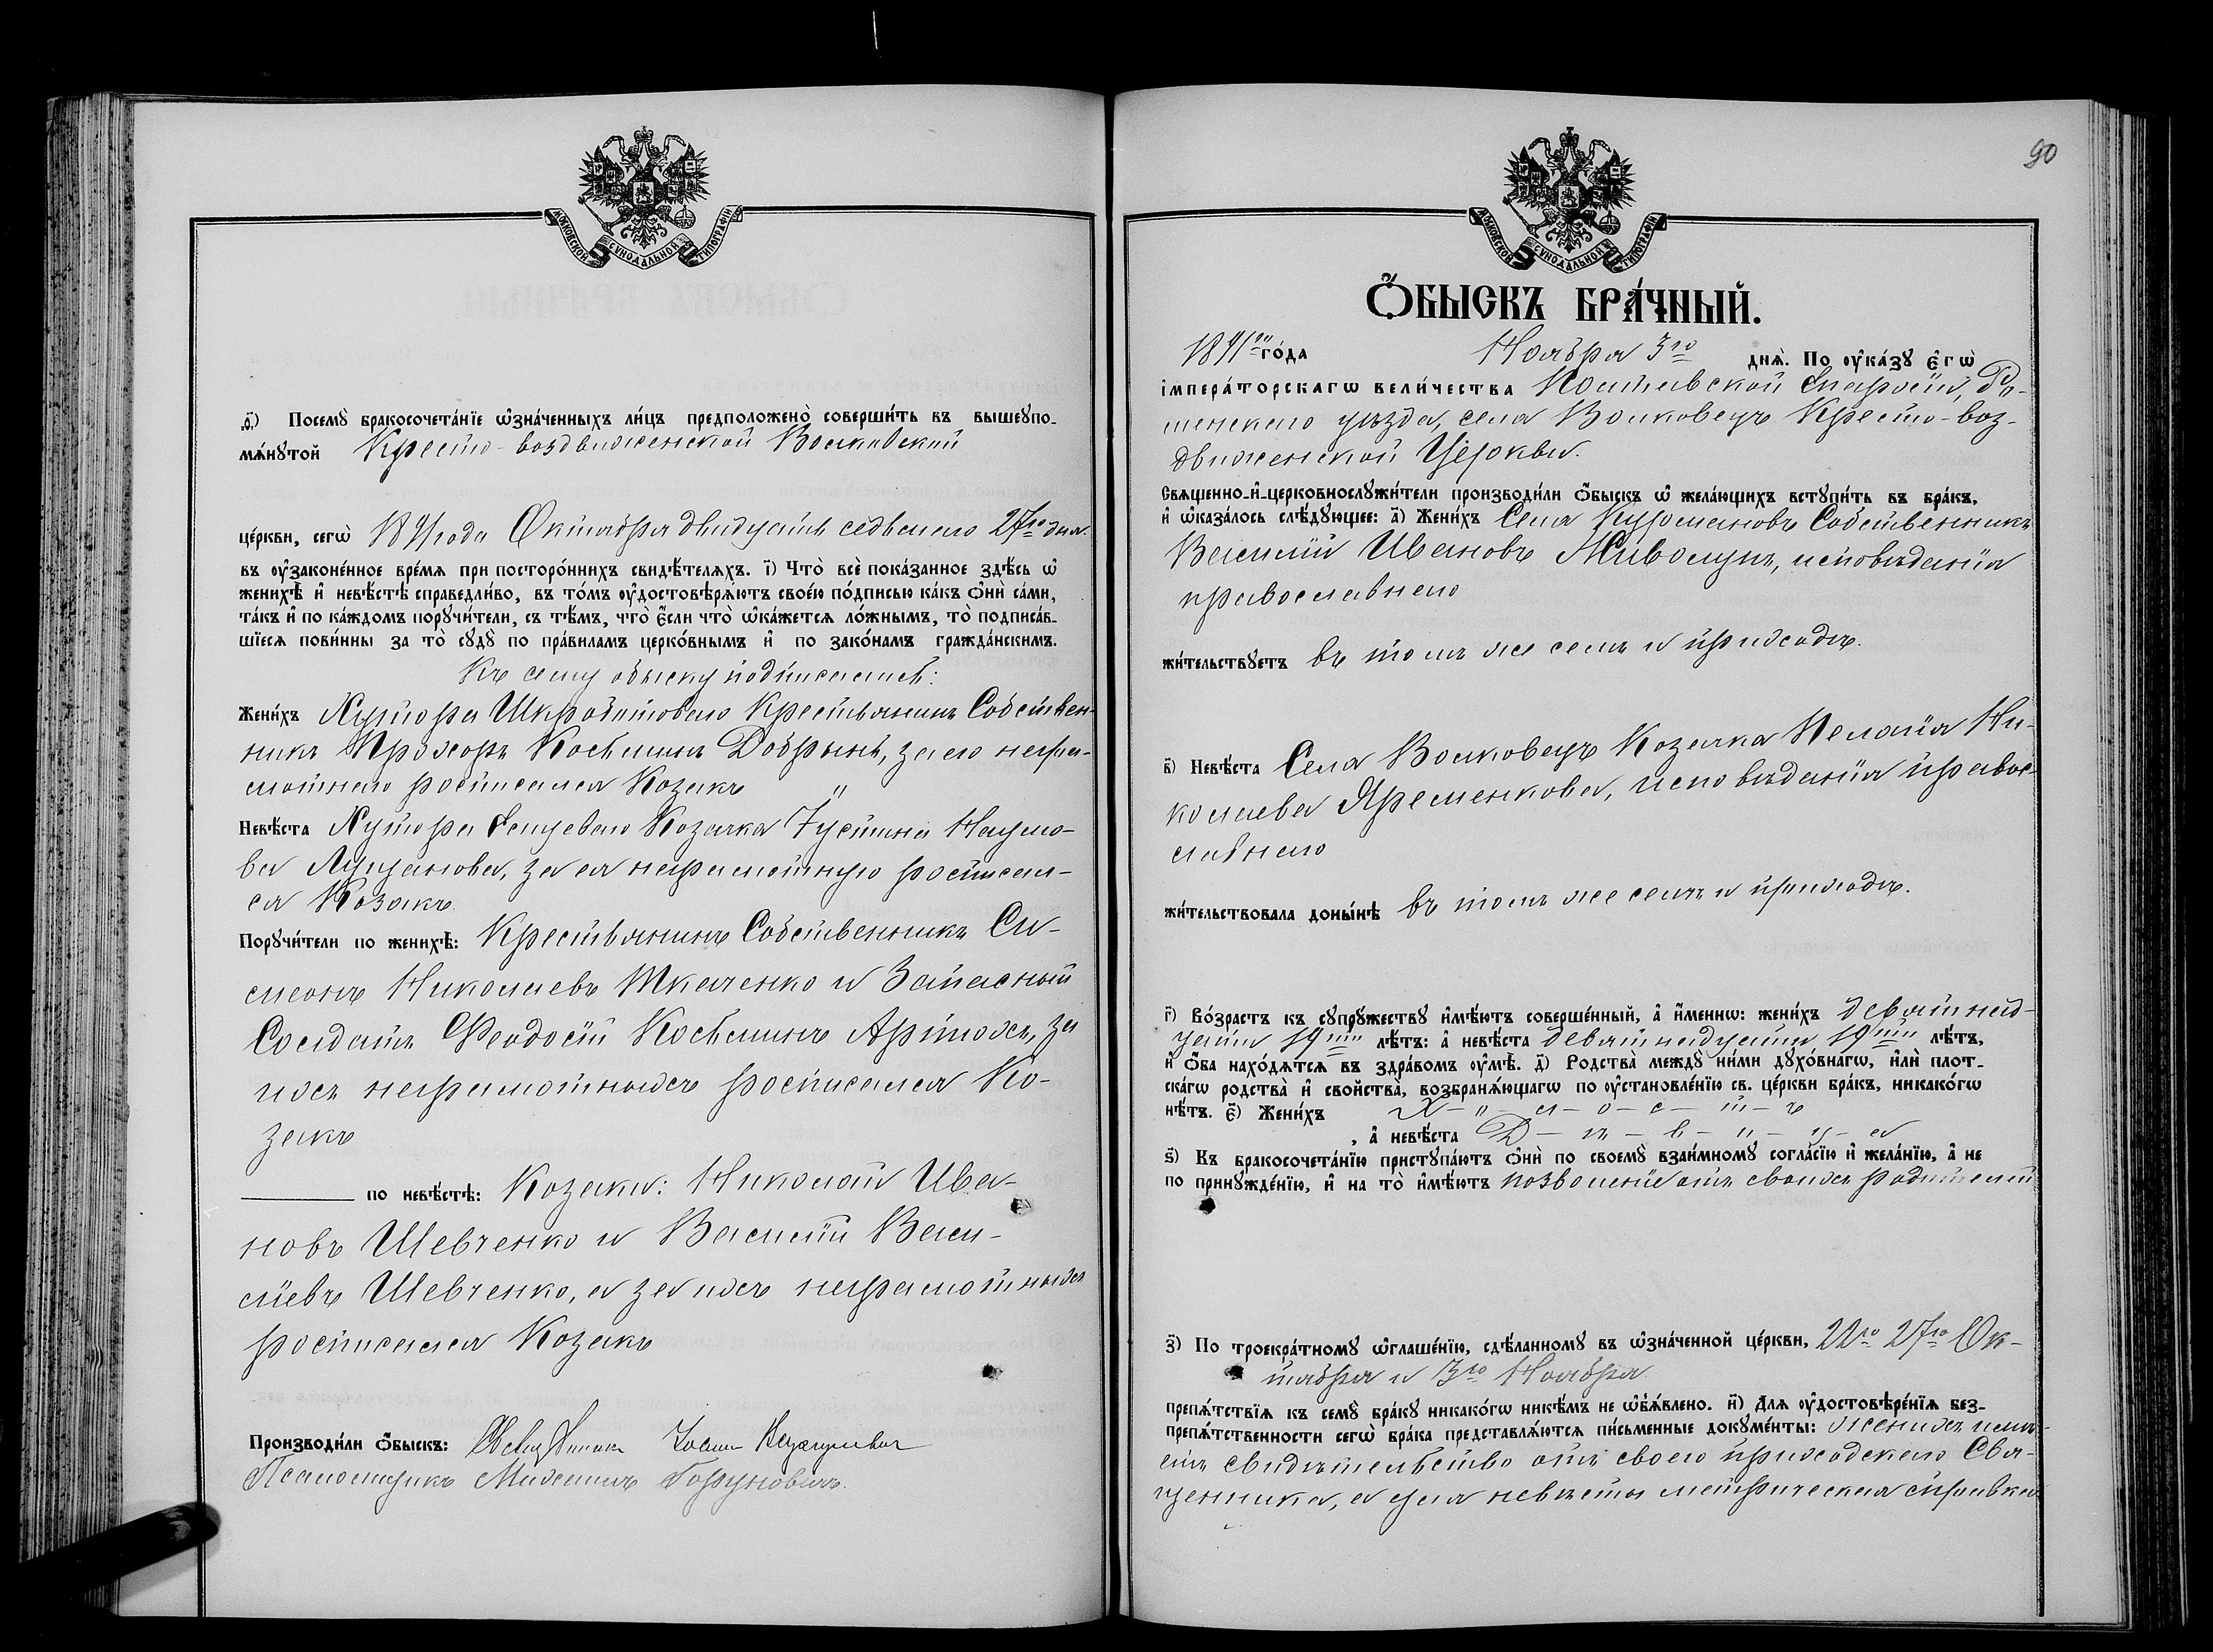 МОСКОВСКОЙ СѴНОДАЛЬНОЙ ТИПОГРАФІИ
Посемꙋ̀ бракосочета́нїе ѡ҆зна́ченныхъ ли́цъ предположено̀ соверши́ть въ вышеꙋпо-
мѧ́нꙋтой Кресто-воздвиженской Волковской
це́ркви, сегѡ̀ 1891 года Октября двадцать седьмого 27го дня.
въ ᲂу҆зако́не́нное вре́мѧ при посторо́ннихъ свидѣ́телѧхъ. і҃) Что̀ всѐ пока́занное здѣ́сь ѡ҆
женихѣ̀ и҆ невѣ́стѣ справедли́во, въ то́мъ ᲂу҆достовѣрѧ́ютъ свое́ю по́дписью ка́къ ѻ҆нѝ са́ми,
та́къ и҆ по ка́ждомъ порꙋчи́тели, съ тѣ́мъ, что̀ є҆́сли что̀ ѡ҆ка́жетсѧ ло́жнымъ, то̀ подписа́в-
шїесѧ пови́нны за то̀ сꙋдꙋ̀ по пра́виламъ церко́внымъ и҆ по зако́намъ гражда́нскимъ.
Къ сему обыску подписались:
Жени́хъ Хутора Шкроботового Крестьянинъ Собствен-
никъ Прохоръ Косьминъ Добрынь, за его негра-
мотнаго росписался Козакъ "
Невѣ́ста Хутора Козачка Устина Наумо-
ва Луцанова, за ея неграмотную росписал-
ся Козакъ
Порꙋчи́тели по женихѣ̀: Крестьянинъ Собственникъ Си-
меонъ Николаевъ Ткаченко и Запасный
Солдатъ Феодосій Косьминъ Артюхъ, за
ихъ неграмотныхъ росписался Ко-
закъ
по невѣ́стѣ: Козаки: Николай Ива-
новъ Шевченко и Василій Васи-
ліевъ Шевченко, а за ихъ неграмотныхъ
росписался Козакъ
Производи́ли ѻ҆́быскъ: Іоаннъ
Псаломщикъ Михаилъ Горуновичъ.
90
МОСКОВСКОЙ СѴНОДАЛЬНОЙ ТИПОГРАФІИ
Ѻ҆́БЫСКЪ БРА́ЧНЫЙ.
1891го го́да Ноября 3го днѧ̀. По ᲂу҆ка́зꙋ є҆гѡ̀
і҆мпера́торскагѡ вели́чества Полтавской Епархіи, Ро-
менскаго уѣзда, села Волковецъ Кресто-воз-
движенской Церкви.
Свѧще́нно-и҆-церковнослꙋжи́тели производи́ли ѻ҆́быскъ ѡ҆ жела́ющихъ встꙋпи́ть въ бра́къ,
и҆ ѡ҆каза́лось слѣ́дꙋющее: а҃) Жени́хъ Села Курмановъ Собственникъ
Василій Ивановъ Живолупъ, исповѣданія
православнаго
жи́тельствꙋетъ въ томъ же селѣ и приходѣ.
в҃) Невѣ́ста Села Волковецъ Козачка Пелагія Ни-
колаева Яременкова, исповѣданія правос-
лавнаго
жи́тельствовала доны́нѣ въ томъ же селѣ и приходѣ.
г҃) Во́зрастъ къ сꙋпрꙋ́жествꙋ и҆мѣ́ютъ соверше́нный, а҆ и҆́меннѡ: жени́хъ девятнад-
цати 19ти лѣ́тъ: а҆ невѣ́ста девятнадцати 19ти лѣ́тъ,
и҆ ѻ҆́ба нахо́дѧтсѧ въ здра́вомъ ᲂу҆мѣ̀. д҃) Родства̀ междꙋ̀ ни́ми дꙋхо́внагѡ, и҆лѝ плот-
ска́гѡ родства̀ и҆ сво́йства̀, возбранѧ́ющагѡ по ᲂу҆становле́нїю св. це́ркви бра́къ, никако́гѡ
нѣ́тъ. є҃) Жени́хъ Х-о-л-о-с-т-ъ
, а҆ невѣ́ста Д-ѣ-в-и-ц-а
ѕ҃) Къ бракосочета́нїю пристꙋпа́ютъ ѻ҆нѝ по своемꙋ̀ взаи́мномꙋ согла́сїю и҆ жела́нїю, а҆ не
по принꙋжде́нїю, и҆ на то̀ и҆мѣ́ютъ позволеніе отъ своихъ родителей
з҃) По троекра́тномꙋ ѡ҆глаше́нїю, сдѣ́ланномꙋ въ ѡ҆зна́ченной це́ркви, 22го 27го Ок-
тября и 3го Ноября
препѧ́тствїѧ къ семꙋ̀ бра́кꙋ никако́гѡ никѣ́мъ не ѡ҆б̾ѧ́влено. и҃) Для ᲂу҆достовѣре́нїѧ без-
препѧ́тственности сегѡ̀ бра́ка представлѧ́ютсѧ пи́сьменные докꙋме́нты: женихъ имѣ-
етъ свидѣтельство отъ своего приходскаго Свя-
щенника, а для невѣсты метрическая справка